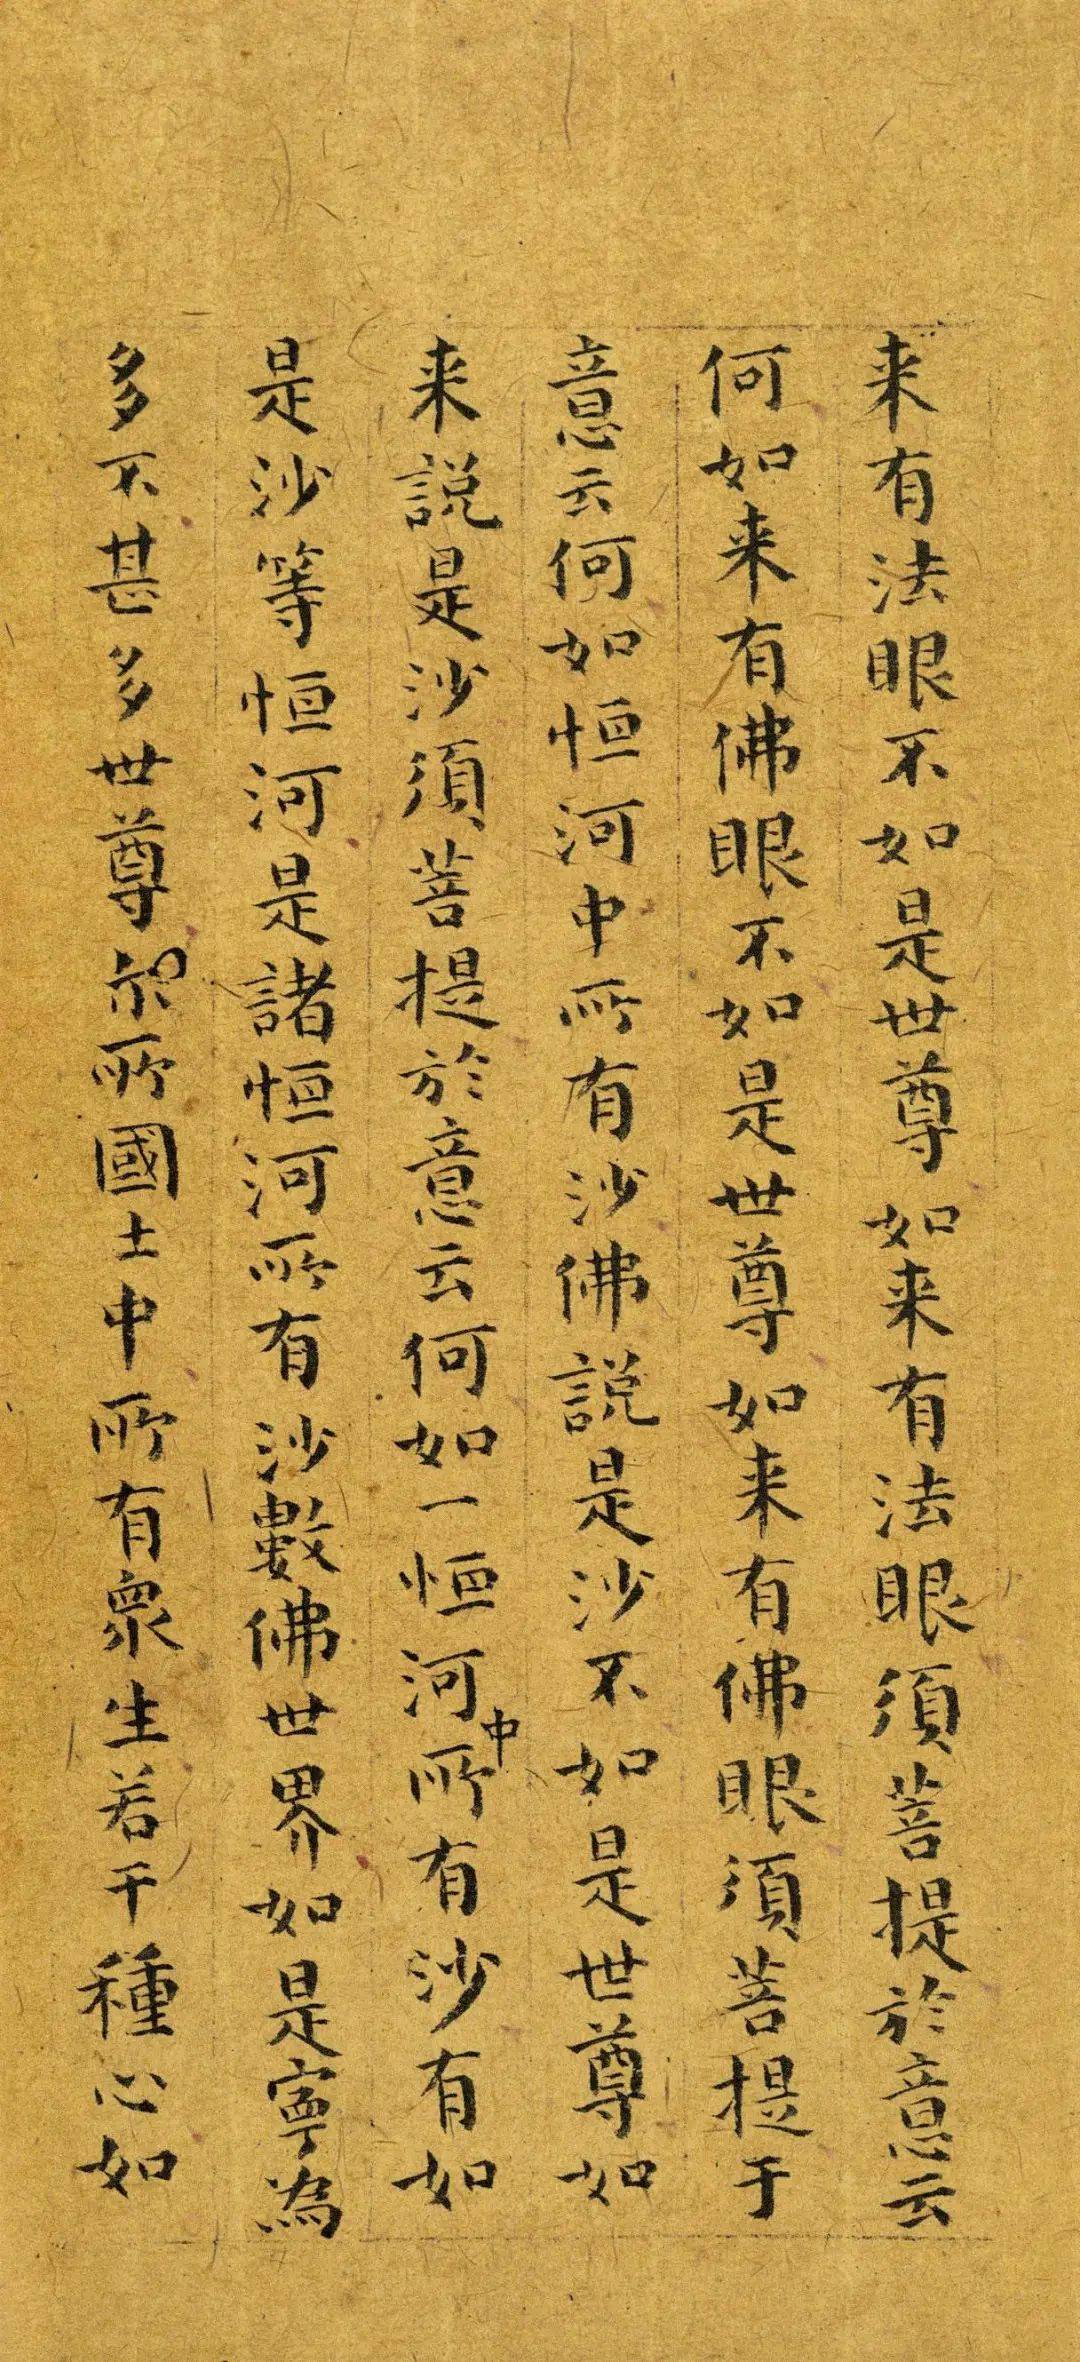 来有法眼不如是世尊如来有法眼須菩提於意云
何如来有佛眼不如是世尊如来有佛眼須菩提于
意云何如恒河中所有沙佛說是沙不如是世尊如
来說是沙須菩提於意云何如一恒河中所有沙有如
是沙等恒河是諸恒河所有沙數佛世界如是寧為
多不甚多世尊尒所國土中所有衆生若干種心如